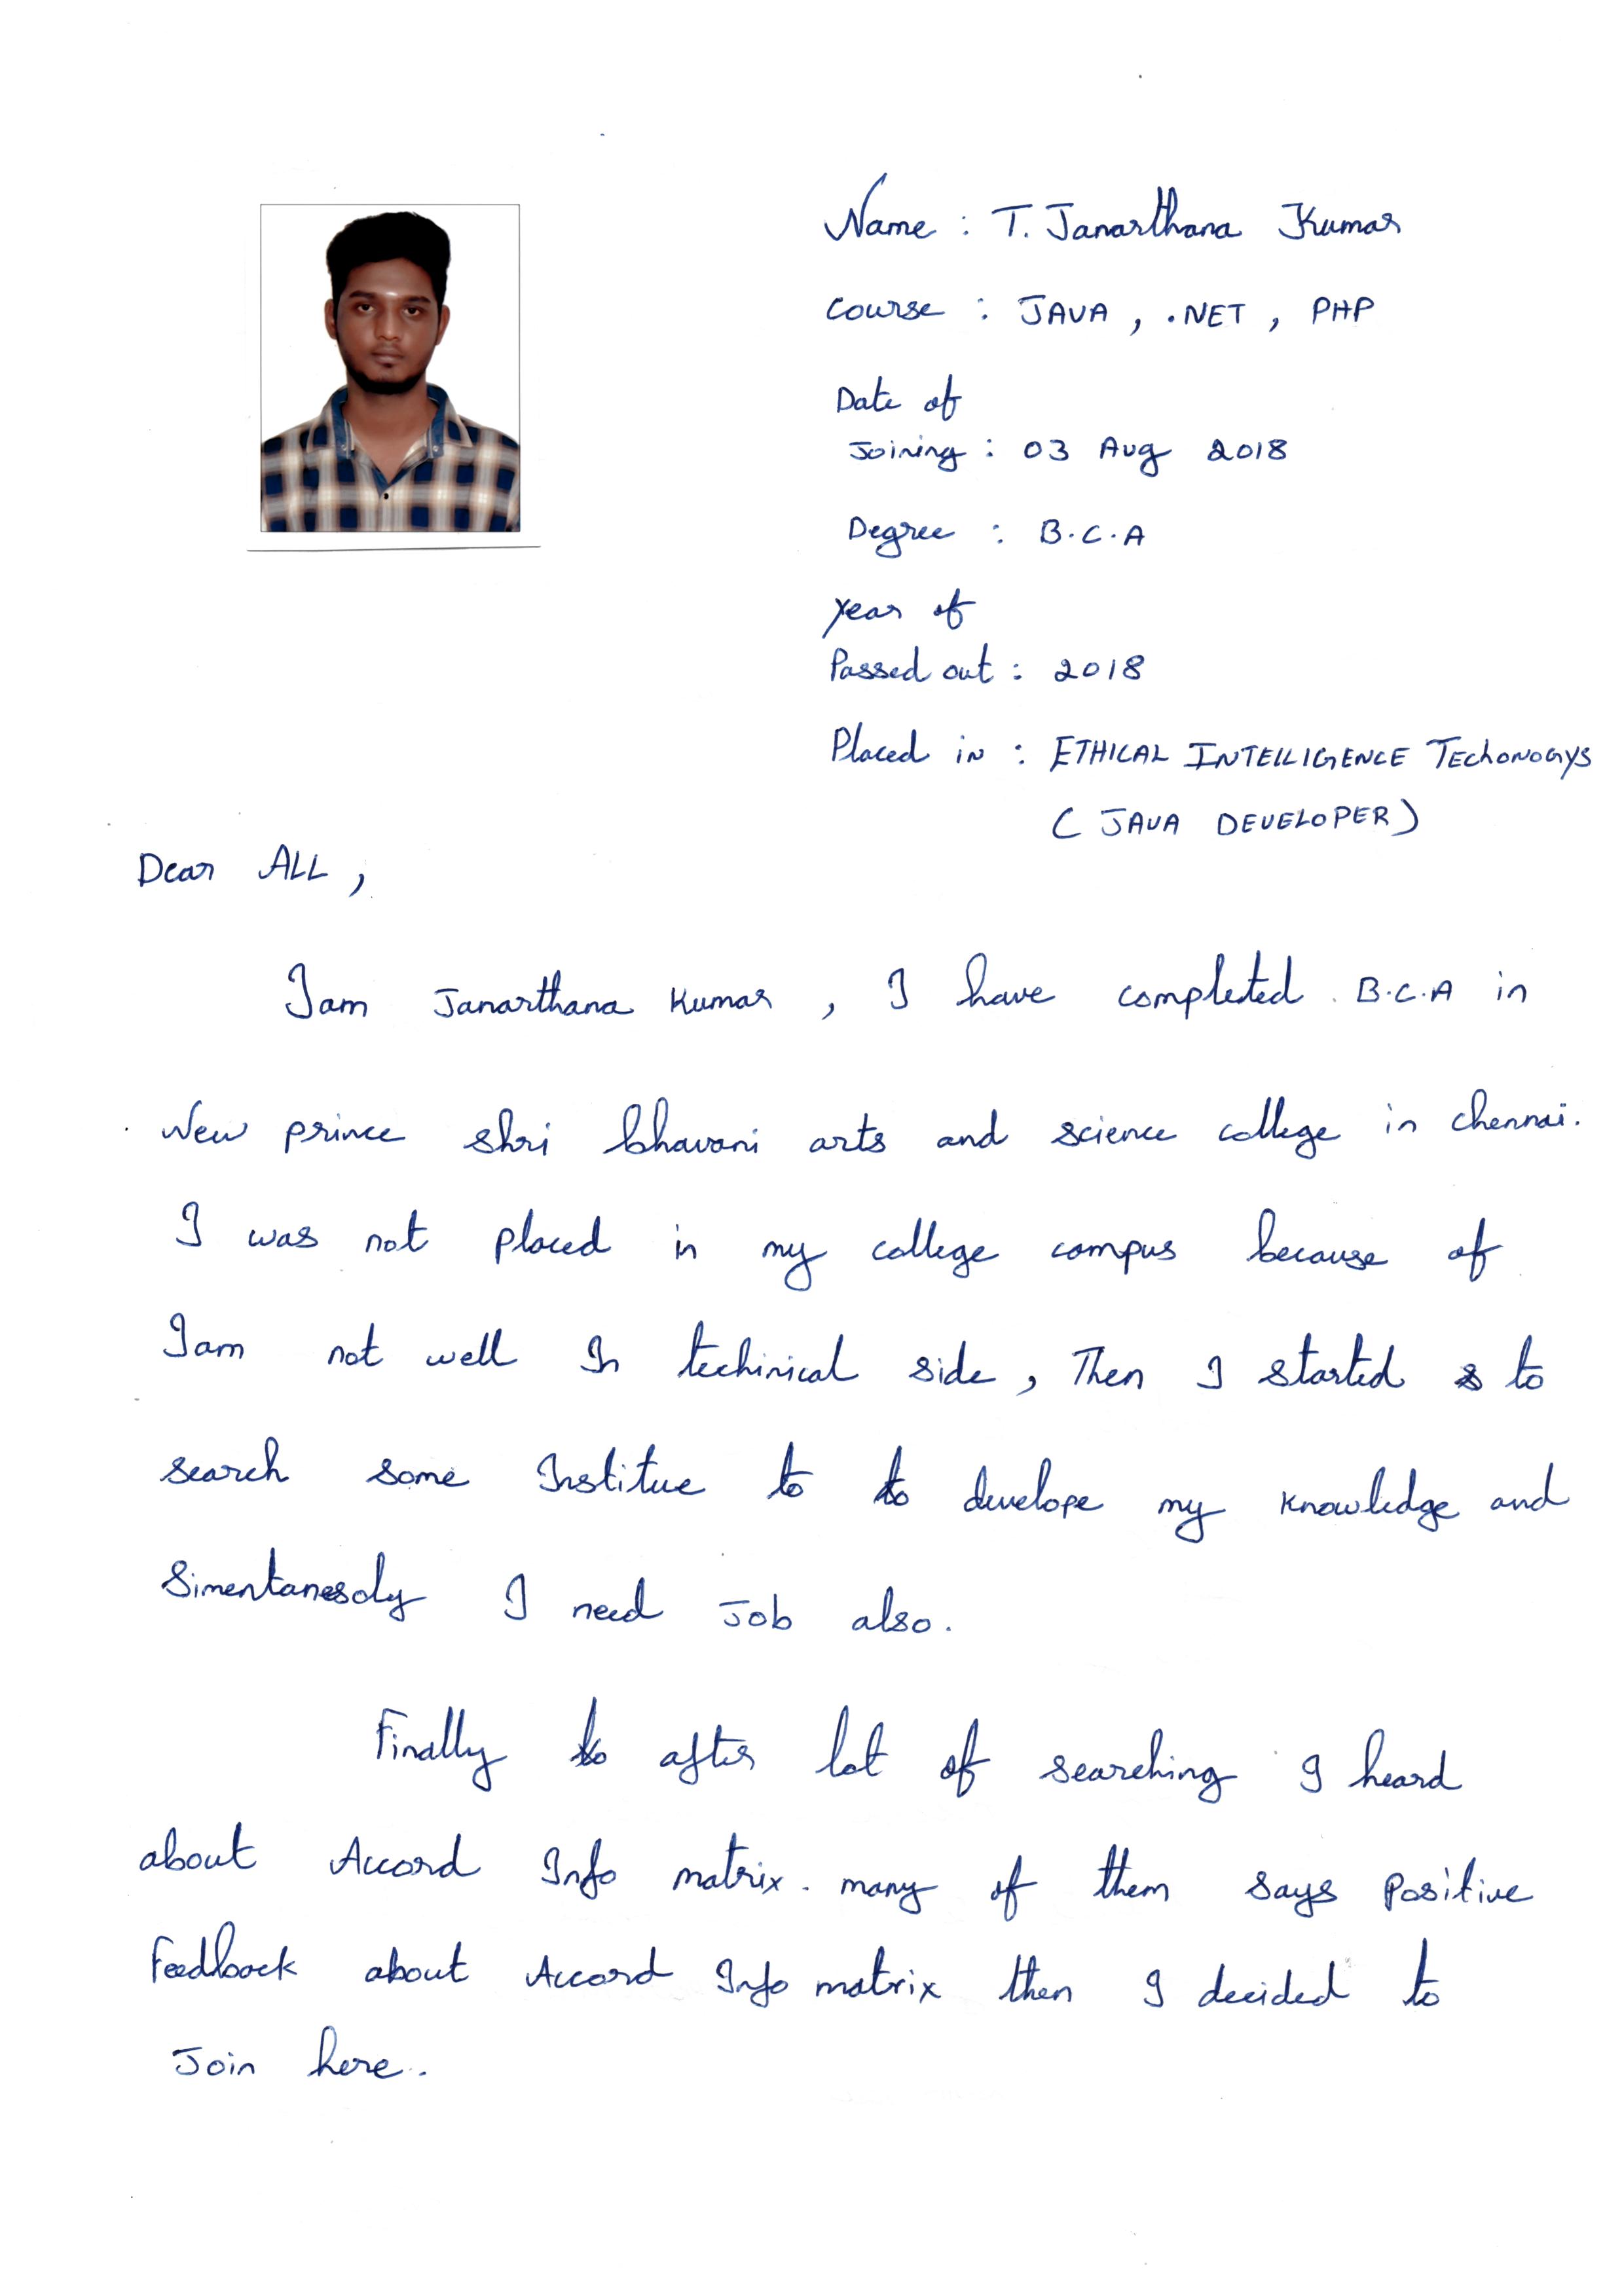 Name : T. Janarthana Kumar
Course : JAVA , .NET , PHP
Date of
Joining : 03 Aug 2018
Degree : B.C.A
Year of
Passed out : 2018
Placed in : ETHICAL INTELLIGENCE TEChONOGYS
( JAVA DEVELOPER )
Dear ALL ,
Iam Janarthana Kumar , I have completed B.C.A in
New prince shri bhavani arts and science college in chennai.
I was not placed in my college campus because of
Iam not well In techinical side , Then I started to
search some Institue to to develope my knowledge and
Simentanesoly I need Job also.
Finally to after lot of searching I heard
about Accord Info matrix. many of them says positive
Feedback about Accord Info matrix then I decided to
Join here.